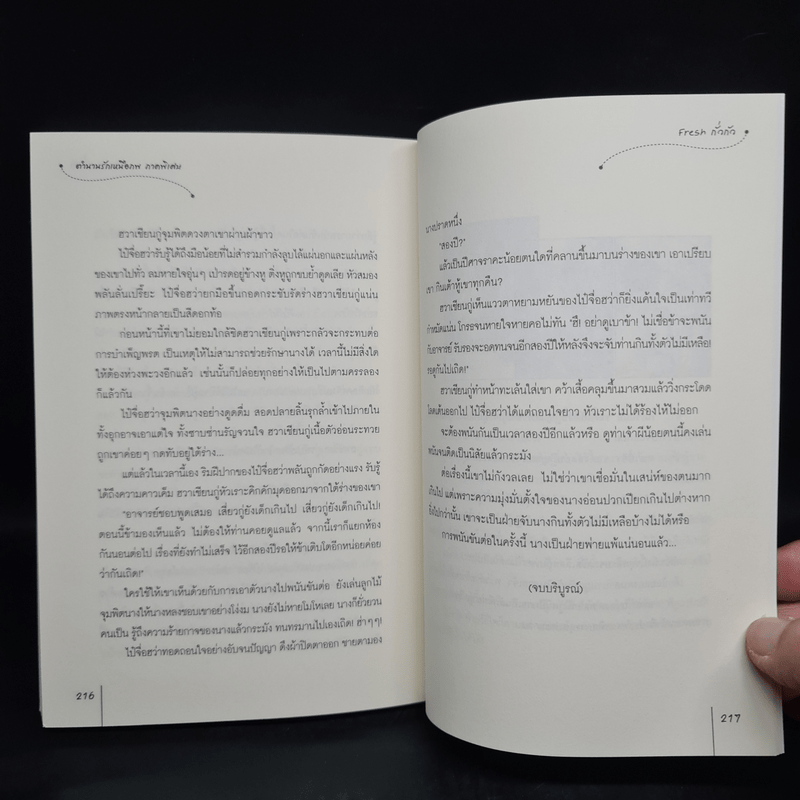 ตำนานรักเหนือภพ ภาคพิเศษ
ฮวาเชียนกู่จุมพิตดวงตาเขาผ่านผ้าขาว
ไป๋จื่อฮว่ารับรู้ได้ถึงมือน้อยที่ไม่สำรวมกำลังลูบไล้แผ่นอกและแผ่นหลัง
ของเขาไปทั่ว ลมหายใจอุ่นๆ เป่ารดอยู่ข้างหู ติ่งหูถูกขบย้ำดูดเลีย หัวสมอง
พลันลั่นเปรี๊ยะ ไป๋จื่อฮว่ายกมือขึ้นกอดกระชับรัดร่างฮวาเชียนกู่แน่น
ภาพตรงหน้ากลายเป็นสีดอกท้อ
ก่อนหน้านี้ที่เขาไม่ยอมใกล้ชิดฮวาเชียนกู่เพราะกลัวจะกระทบต่อ
การบำเพ็ญพรต เป็นเหตุให้ไม่สามารถช่วยรักษานางได้ เวลานี้ไม่มีสิ่งใด
ให้ต้องห่วงพะวงอีกแล้ว เช่นนั้นก็ปล่อยทุกอย่างให้เป็นไปตามครรลอง
ก็แล้วกัน
ไป๋จื่อฮว่าจุมพิตนางอย่างดูดดื่ม สอดปลายลิ้นรุกล้ำเข้าไปภายใน
ทั้งอุกอาจเอาแต่ใจ ทั้งซาบซ่านรัญจวนใจ ฮวาเชียนกู่เนื้อตัวอ่อนระทวย
ถูกเขาค่อยๆ กดทับอยู่ใต้ร่าง...
แต่แล้วในเวลานี้เอง ริมฝีปากของไป๋จื่อฮว่าพลันถูกกัดอย่างแรง รับรู้
ได้ถึงความคาวเค็ม ฮวาเชียนกู่หัวเราะคิกคักมุดออกมาจากใต้ร่างของเขา
"อาจารย์ชอบพูดเสมอ เสี่ยวกู่ยังเด็กเกินไป เสี่ยวกู่ยังเด็กเกินไป!
ตอนนี้ข้ามองเห็นแล้ว ไม่ต้องให้ท่านคอยดูแลแล้ว จากนี้เราก็แยกห้อง
กันนอนต่อไป เรื่องที่ยังทำไม่เสร็จ ไว้อีกสองปีรอให้ข้าเติบโตอีกหน่อยค่อย
ว่ากันเถิด!"
ใครใช้ให้เขาเห็นด้วยกับการเอาตัวนางไปพนันขันต่อ ยังเล่นลูกไม้
จุมพิตนางให้นางหลงชอบเขาอย่างโง่งม นางยังไม่หายโมโหเลย นางก็ยั่วยวน
คนเป็น รู้ถึงความร้ายกาจของนางแล้วกระมัง ทนทรมานไปเองเถิด! ฮ่าๆๆ!
ไป๋จื่อฮว่าทอดถอนใจอย่างอับจนปัญญา ดึงผ้าปิดตาออก ชายตามอง
216
Fresh กั่วกัว
นางปราดหนึ่ง
"สองปี?"
แล้วเป็นปีศาจราคะน้อยตนใดที่คลานขึ้นมาบนร่างของเขา เอาเปรียบ
เขา กินเต้าหู้เขาทุกคืน?
ฮวาเชียนกู่เห็นแววตาหยามหยันของไป๋จื่อฮว่าก็ยิ่งแค้นใจเป็นเท่าทวี
กำหมัดแน่น โกรธจนหายใจหายคอไม่ทัน "ฮึ! อย่าดูเบาข้า! ไม่เชื่อข้าจะพนัน
กับอาจารย์ รับรองจะอดทนจนอีกสองปีให้หลังจึงจะจับท่านกินทั้งตัวไม่มีเหลือ!
รอดูกันไปเถิด!"
ฮวาเชียนกู่ทำหน้าทะเล้นใส่เขา คว้าเสื้อคลุมขึ้นมาสวมแล้ววิ่งกระโดด
โลดเต้นออกไป ไป๋จื่อฮว่าได้แต่ถอนใจยาว หัวเราะไม่ได้ร้องไห้ไม่ออก
จะต้องพนันกันเป็นเวลาสองปีอีกแล้วหรือ ดูท่าเจ้าผีน้อยตนนี้คงเล่น
พนันจนติดเป็นนิสัยแล้วกระมัง
ต่อเรื่องนี้เขาไม่กังวลเลย ไม่ใช่ว่าเขาเชื่อมั่นในเสน่ห์ของตนมาก
เกินไป แต่เพราะความมุ่งมั่นตั้งใจของนางอ่อนปวกเปียกเกินไปต่างหาก
ยิ่งไปกว่านั้น เขาจะเป็นฝ่ายจับนางกินทั้งตัวไม่มีเหลือบ้างไม่ได้หรือ
การพนันขันต่อในครั้งนี้ นางเป็นฝ่ายพ่ายแพ้แน่นอนแล้ว...
(จบบริบูรณ์)
217